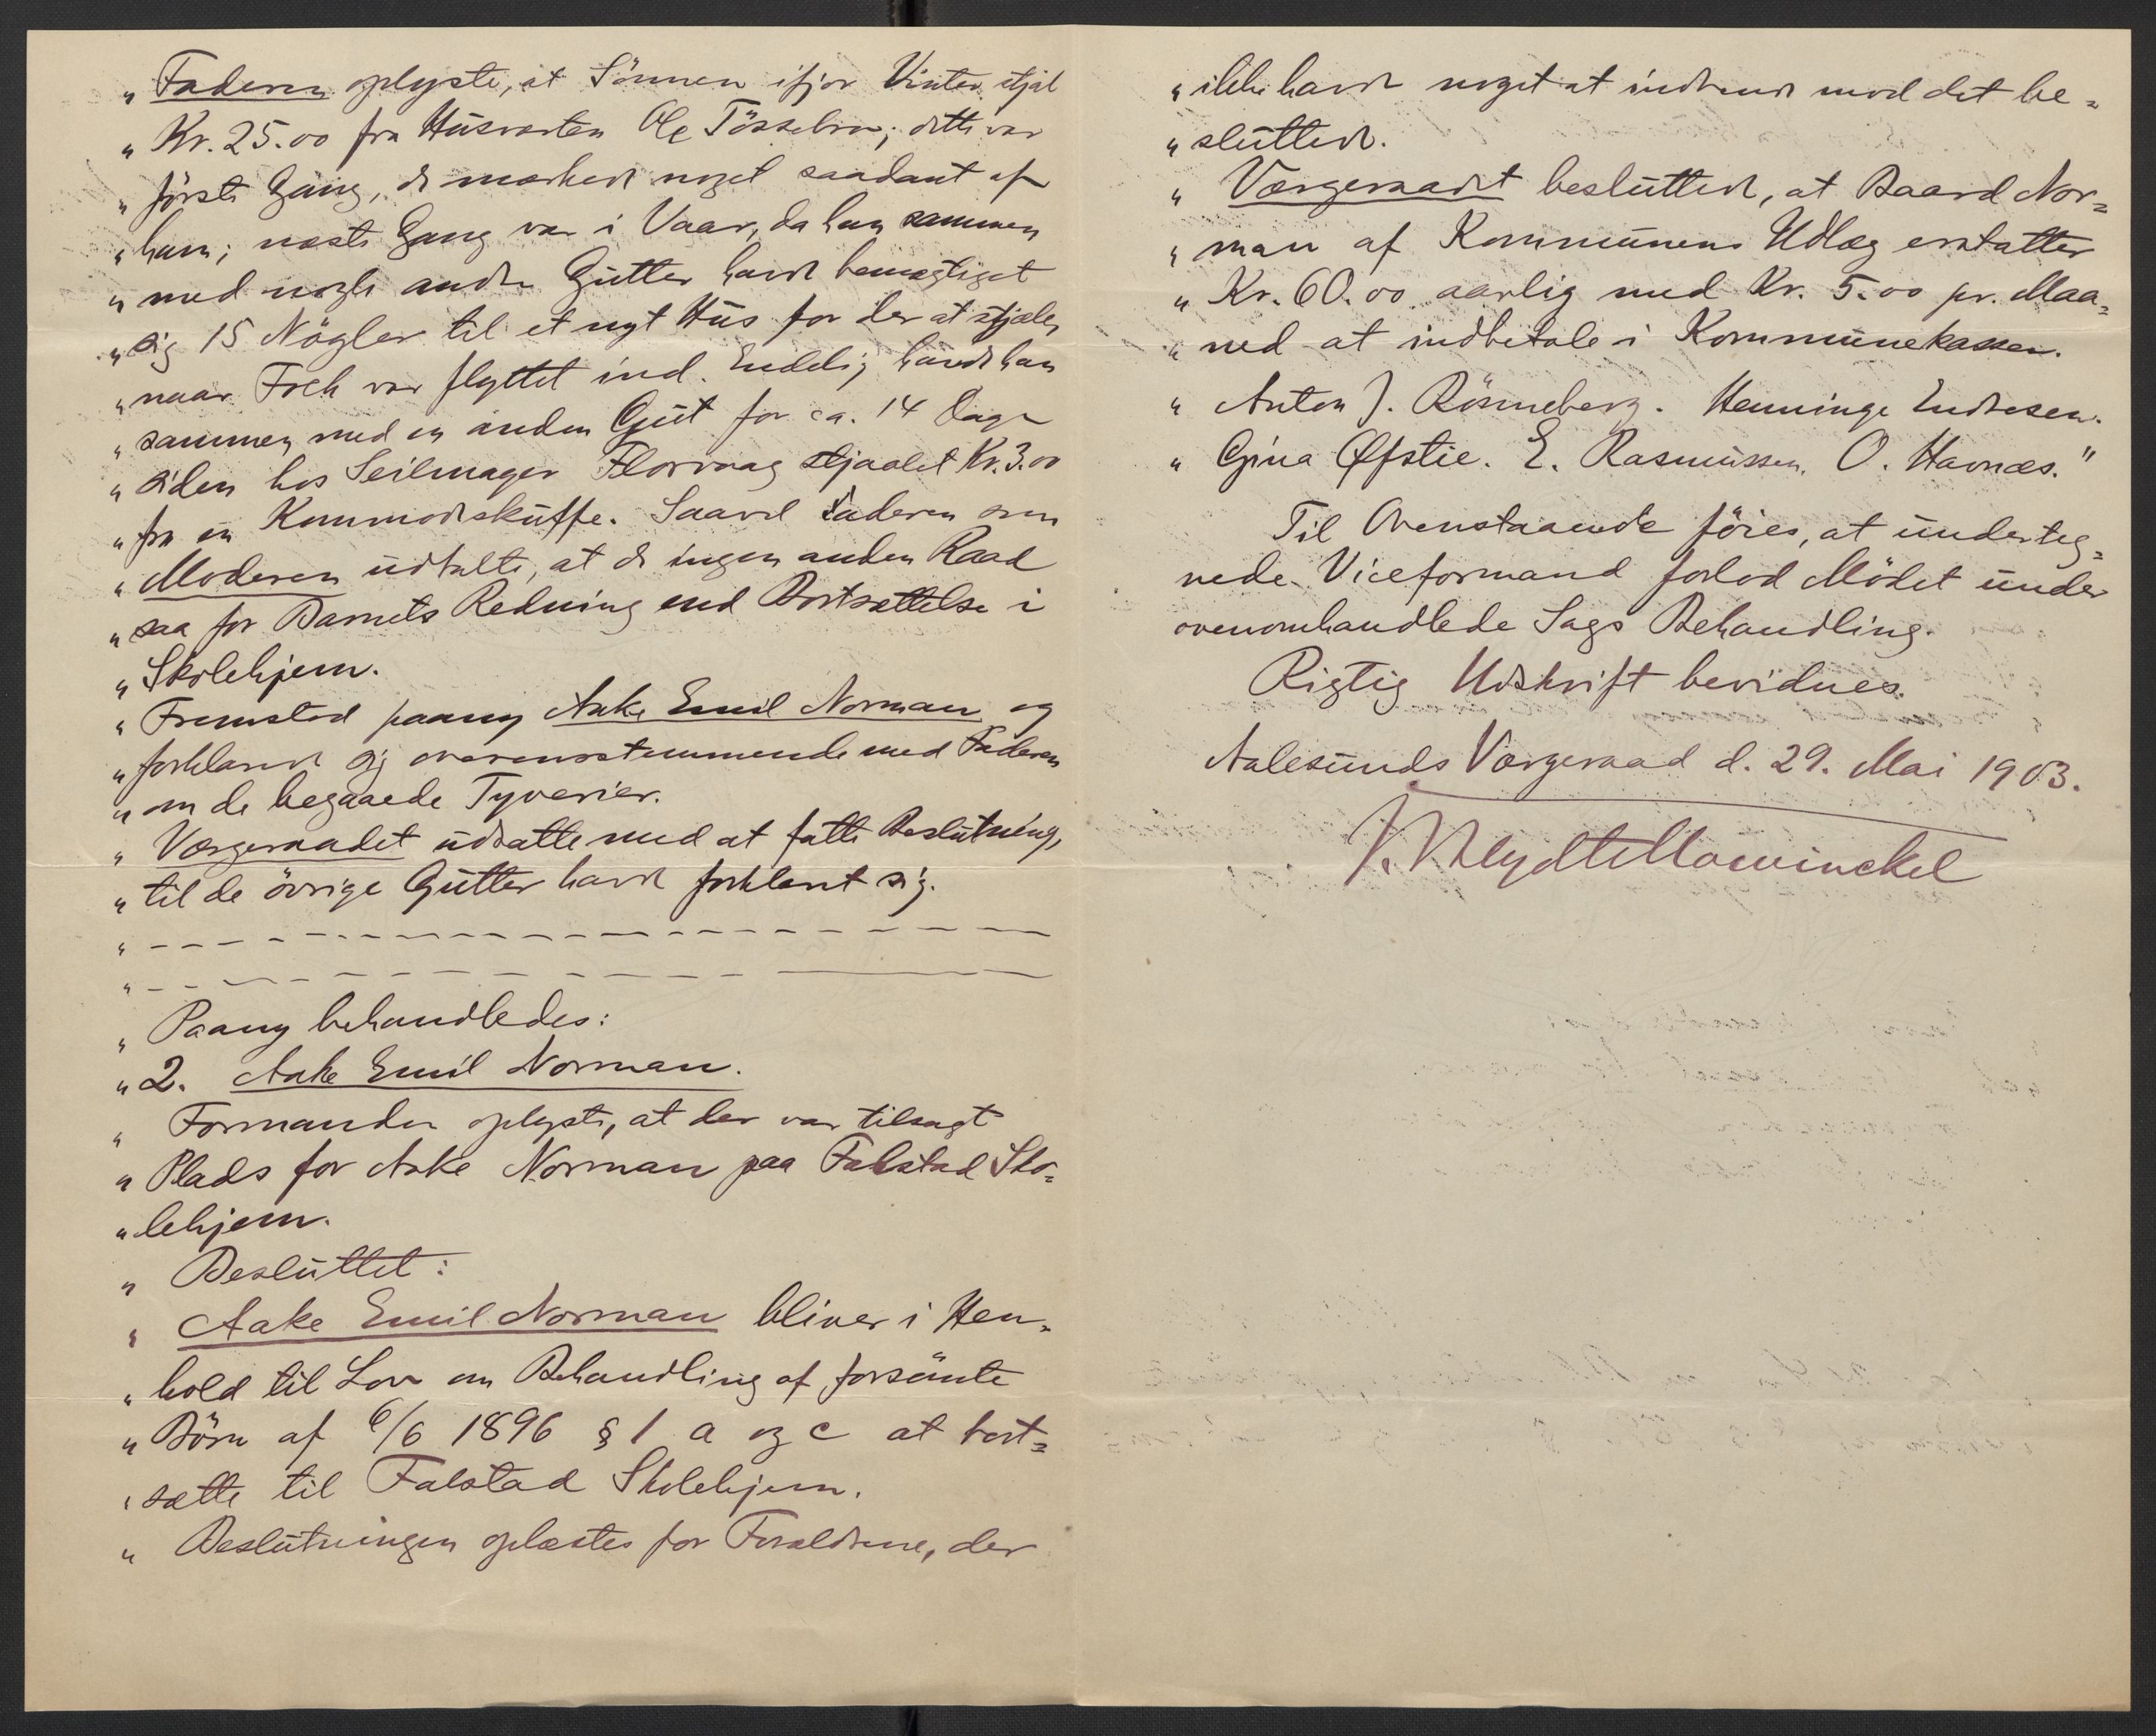 „ Faderen oplyste, at Sönnen ifjor Vinter stjal
„ Kr. 25.00 fra Husverten Ole Tösse; dette var
„ förste Gang, de merkede noget saadant af
„ ham; neste Gang var i Vaar, da han sammen
„ med nogle andre Gutter havde bemegtiget
„ sig 15 Nögler til et nyt Hus for der at stjæle,
„ naar Folk var flyttet ind. Endelig havde han
„ sammen med en anden Gut for ca. 14 Dage
„ siden hos Seilmager Florvaag stjaalet Kr. 3.00
„ fra en Kommodeskuffe. Saavel Faderen som
„ Moderen udtalte, at de ingen anden Raad
„ saa for Barnets Redning end Bortsættelse i
„ Skolehjem.
„ Fremstod paany Aake Emil Norman og
„ forklarede sig overensstemmende med Faderen
„ om de begaaede Tyverier.
„ Vergeraadet udsatte med at fatte Beslutning,
„ til de övrige Gutter havde forklart sig.
„ — — — — — — — — — — — —
„ — — — — — — — — — — — —
„ Paany behandledes:
„ 2. Aake Emil Norman.
„ Formanden oplyste, at der var tilsagt
„ Plads for Aake Norman paa Falstad Sko=
„ lehjem.
„ Besluttet:
„ Aake Emil Norman bliver i Hen=
„ hold til Lov om Behandling af forsömte
„ Börn af 6/6 1896 § 1 a og c at bort=
„ sætte til Falstad Skolehjem.
„ Beslutningen oplæstes for Forældrene, der
„ ikke havde noget at indvende mod det be=
„ sluttede.
„ Vergeraadet besluttede, at Baard Nor=
„ man af Kommunens Udlæg erstatter
„ Kr. 60.00 aarlig med Kr. 5.00 pr. Maa=
„ ned at indbetale i Kommunekassen.
„ Anton J. Rönneberg. Henninge Endresen.
„ Gina Øfstie. E. Rasmussen. O. Havnæs."
Til Ovenstaaende föies, at underteg=
nede Viceformand forlod Mödet under
ovenomhandlede Sags Behandling.
Rigtig Udskrift bevidnes.
Aalesunds Vergeraad d. 29. Mai 1903.
Mowinckel